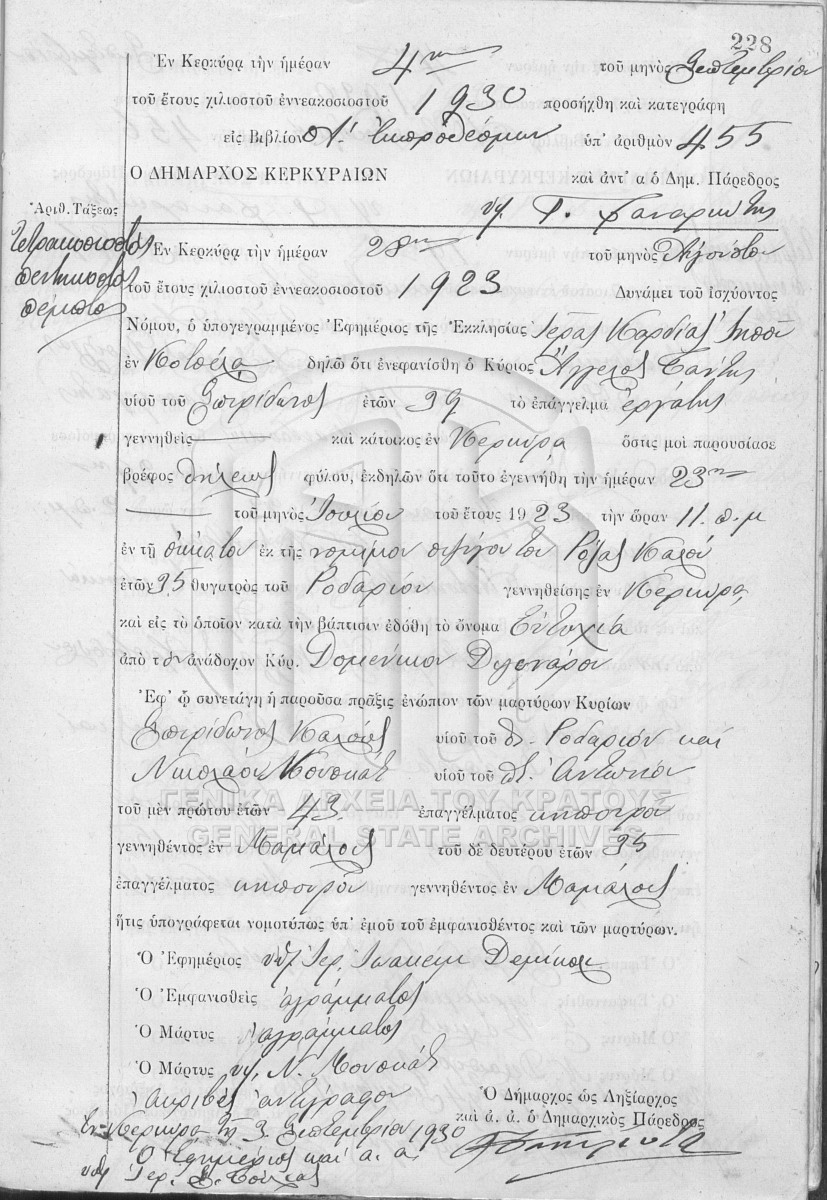 228
Ἐν Κερκύρᾳ τὴν ἡμέραν 4ην τοῦ μηνὸς Σεπτεμβρίου
τοῦ ἔτους χιλιοστοῦ ἐννεακοσιοστοῦ 1930 προσήχθη καὶ κατεγράφη
εἰς Βιβλίον Α΄. Ἐκπροθέσμων ὑπ᾽ ἀριθμὸν 455
Ο ΔΗΜΑΡΧΟΣ ΚΕΡΚΥΡΑΙΩΝ καὶ ἀντ᾽ α ὁ Δημ. Πάρεδρος
Ἀριθ. Τάξεως
Τετρακοσιοστὸς πεντηκοστὸς πέμπτος
Ἐν Κερκύρᾳ τὴν ἡμέραν 28ην τοῦ μηνὸς Αὐγούστου
τοῦ ἔτους χιλιοστοῦ ἐννεακοσιοστοῦ 1923 Δυνάμει τοῦ ἰσχύοντος
Νόμου, ὁ ὑπογεγραμμένος Ἐφημέριος τῆς Ἐκκλησίας Ἱερᾶς Καρδίας Ἰησοῦ
ἐν δηλῶ ὅτι ἐνεφανίσθη ὁ Κύριος Ἄγγελος
υἱοῦ τοῦ Σπιρίδωνος ἐτῶν 39 τὸ ἐπάγγελμα ἐργάτης
γεννηθεὶς καὶ κάτοικος ἐν Κερκύρᾳ ὅστις μοὶ παρουσίασε
βρέφος θήλεως φύλου, ἐκδηλῶν ὅτι τοῦτο ἐγεννήθη τὴν ἡμέραν 23ην
τοῦ μηνὸς Ἰουλίου τοῦ ἔτους 1923 τὴν ὥραν 11. π.μ
ἐν τῇ οἰκίᾳ του ἐκ τῆς νομίμου συζύγου του Ρόζας Καλού
ἐτῶν 35 θυγατρὸς τοῦ Ροδαρίου γεννηθείσης ἐν Κερκύρᾳ
καὶ εἰς τὸ ὁποῖον κατὰ τὴν βάπτισιν ἐδόθη τὸ ὄνομα Εὐτυχία
ἀπὸ τὸν ἀνάδοχον Κύρ. Δομένικον
Ἐφ᾽ ᾧ συνετάγη ἡ παροῦσα πρᾶξις ἐνώπιον τῶν μαρτύρων Κυρίων
Σπιρίδωνος υἱοῦ τοῦ Ροδαρίου καὶ
Νικολάου Μουσκὰτ υἱοῦ τοῦ Ἀντωνίου
τοῦ μὲν πρώτου ἐτῶν 43. ἐπαγγέλματος κηπουροῦ
ΓΕΝΙΚΑ ΑΡΧΕΙΑ ΤΟΥ ΚΡΑΤΟΥΣ
GENERAL STATE ARCHIVES
γεννηθέντος ἐν τοῦ δὲ δευτέρου ἐτῶν 35
ἐπαγγέλματος κηπουροῦ γεννηθέντος ἐν
ἥτις ὑπογράφεται νομοτύπως ὑπ᾽ ἐμοῦ τοῦ ἐμφανισθέντος καὶ τῶν μαρτύρων.
Ὁ Ἐφημέριος Ἱερ. Ἰωακεὶμ
Ὁ Ἐμφανισθεὶς ἀγράμματος
Ὁ Μάρτυς ἀγράμματος
Ὁ Μάρτυς Ν. Μουσκὰτ
Ἀκριβὲς ἀντίγραφον
Ὁ Δήμαρχος ὡς Ληξίαρχος
καὶ ἀ. ἀ. ὁ Δημαρχικὸς Πάρεδρος
Ἐν Κερκύρᾳ τῇ 3 Σεπτεμβρίου 1930
Ὁ Ἐφημέριος καὶ ἀ. ἀ.